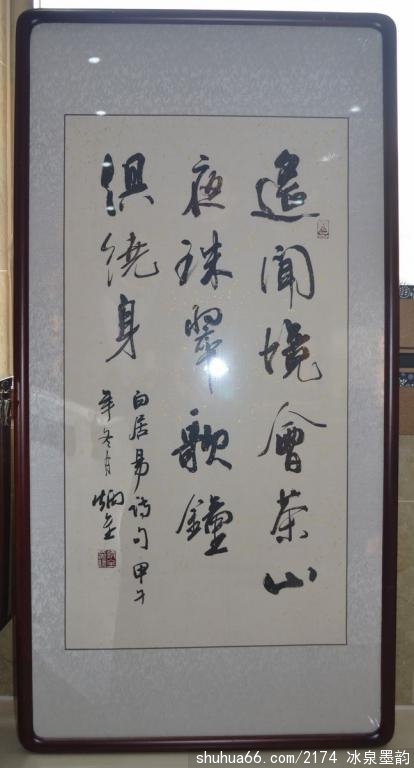 遙聞境會茶山
夜珠翠歌鐘
俱繞身
白居易诗句甲午
年冬月炳
shuhua66.com/2174 冰泉墨韵